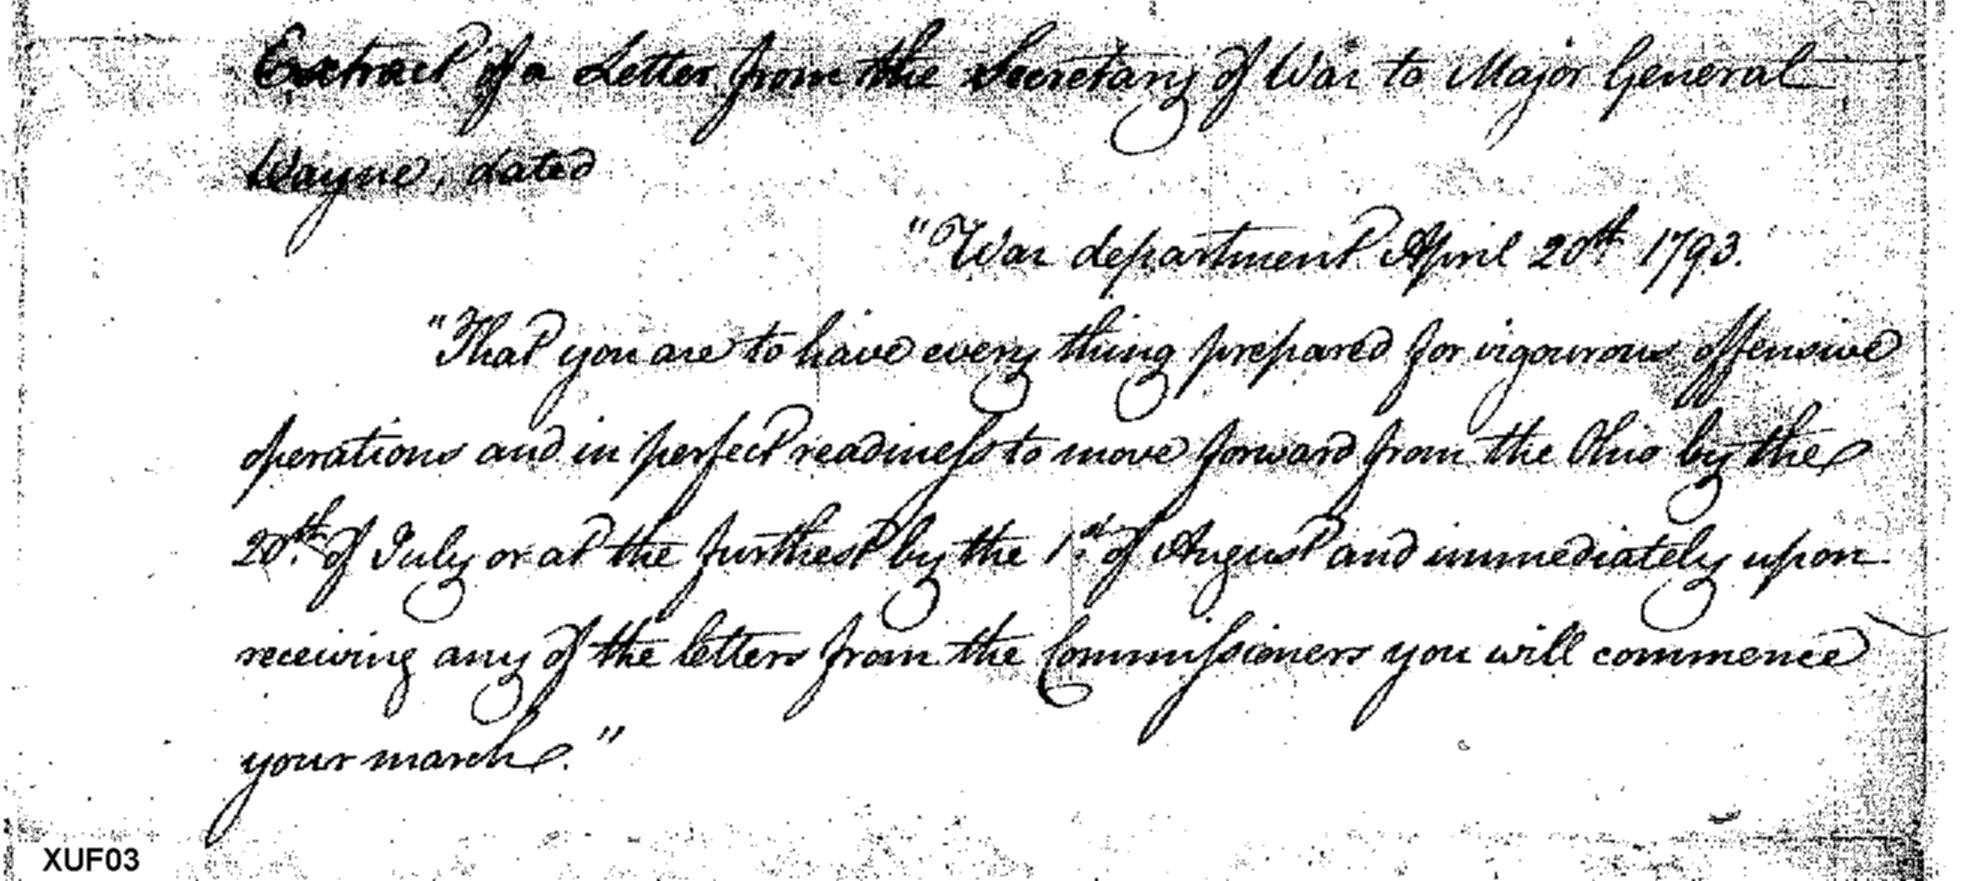 Extract of a Letter from the Secretary of War to Major General
Wayne, dated
"War department April 20th 1793.
"That you are to have every thing prepared for vigourous offensive
operations and in perfect readiness to move forward from the Ohio by the
20th. of July or at the furthest by the 1st. of August and immediately upon
receiving any of the letters from the Commissioners you will commence
your march."
XUF03